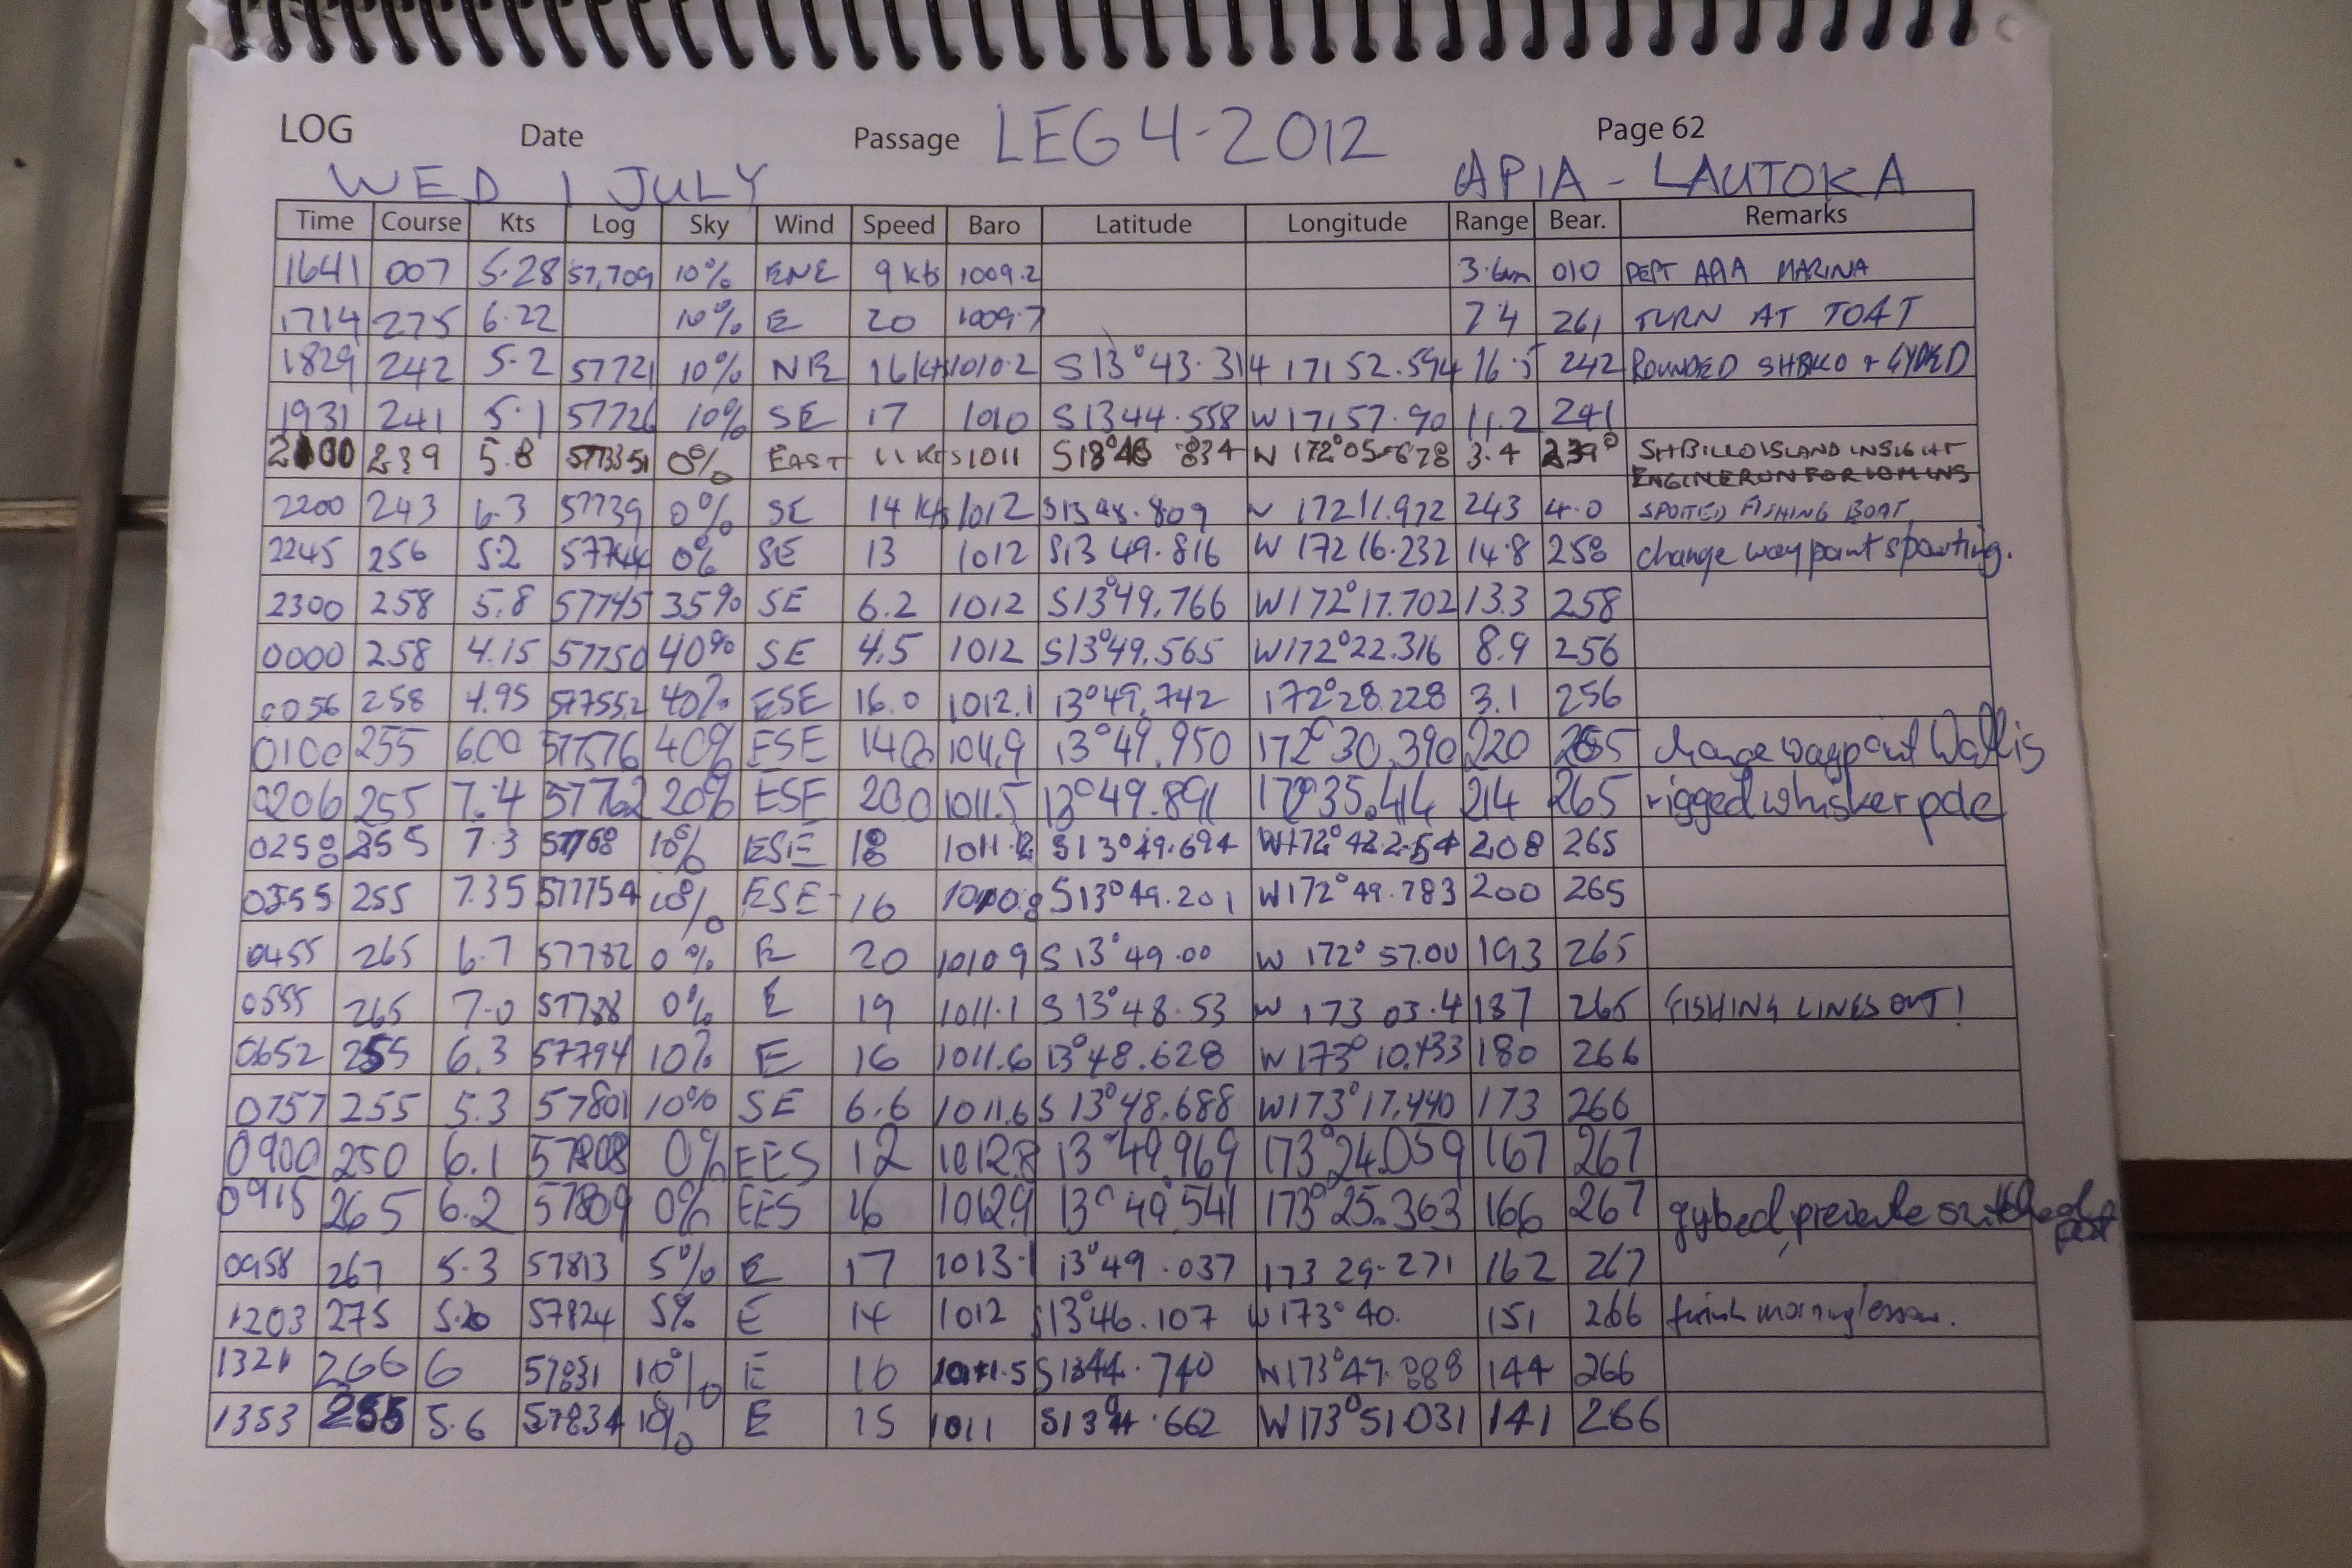 LOG Date Passage LEG 4-2012 Page 62
WED 1 JULY APIA - LAUTOKA
Time Course Kts Log Sky Wind Speed Baro Latitude Longitude Range Bear. Remarks
1641 007 5.28 57,709 10% ENE 9 kts 1009.2 3.6nm 010 DEPT APIA MARINA
1714 275 6.22 10% E 20 1009.7 7.4 261 TURN AT
1829 242 5.2 57721 10% NE 16 kts 1010.2 S13°43.314 171 52.594 16.5 242 ROUNDED & GYBED
1931 241 5.1 57726 10% SE 17 1010 S13 44.558 W 171 57.90 11.2 241
2100 239 5.8 0% EAST 11 KTS 1011 .834 172°05.678 3.4 239° ISLAND INSIGHT
ENGINE RUN FOR 10MINS
2200 243 6.3 57739 0% SE 14 Kts 1012 172 11.972 243 4.0 SPOTTED FISHING BOAT
2245 256 5.2 57744 0% SE 13 1012 S13 49.816 W 172 16.232 14.8 258 change waypoint
2300 258 5.8 57745 35% SE 6.2 1012 S13°49.766 W172°17.702 13.3 258
0000 258 4.15 57750 40% SE 4.5 1012 S13°49.565 W172°22.316 8.9 256
0056 258 4.95 577552 40% ESE 16.0 1012.1 13°49.742 172°28.228 3.1 256
0100 255 6.00 57576 40% ESE 14.0 13°49.950 172°30.390 220 265 change waypoint Wallis
0206 255 7.4 57762 20% ESE 20.0 1011.5 13°49.891 172°35.414 214 265 rigged whisker pole
0258 255 7.3 57768 10% ESE 18 1011.2 S13°49.694 W172°42.254 208 265
0355 255 7.35 577754 10% ESE 16 1010.8 S13°49.201 W172°49.783 200 265
0455 265 6.7 57782 0% E 20 1010.9 S 13°49.00 W 172° 57.00 193 265
0555 265 7.0 57788 0% E 19 1011.1 S 13°48.53 W 173 03.4 187 265 FISHING LINES OUT!
0652 255 6.3 57794 10% E 16 1011.6 13°48.628 W 173° 10.433 180 266
0757 255 5.3 57801 10% SE 6.6 1011.6 S 13°48.688 W173°17.440 173 266
0900 250 6.1 57808 0% EES 12 1012.8 13°49.969 173°24.059 167 267
0915 265 6.2 57809 0% EES 16 1012.9 13°49.541 173°25.363 166 267 gybed,
0958 267 5.3 57813 5% E 17 1013.1 13°49.037 173 29.271 162 267
1203 275 5.20 57824 5% E 14 1012 S13°46.107 W 173° 40. 151 266 finish morning lesson.
1321 266 6 57831 10% E 16 1011.5 S 1344.740 W173°47.888 144 266
1353 255 5.6 57834 10% E 15 1011 .662 W 173°51.031 141 266